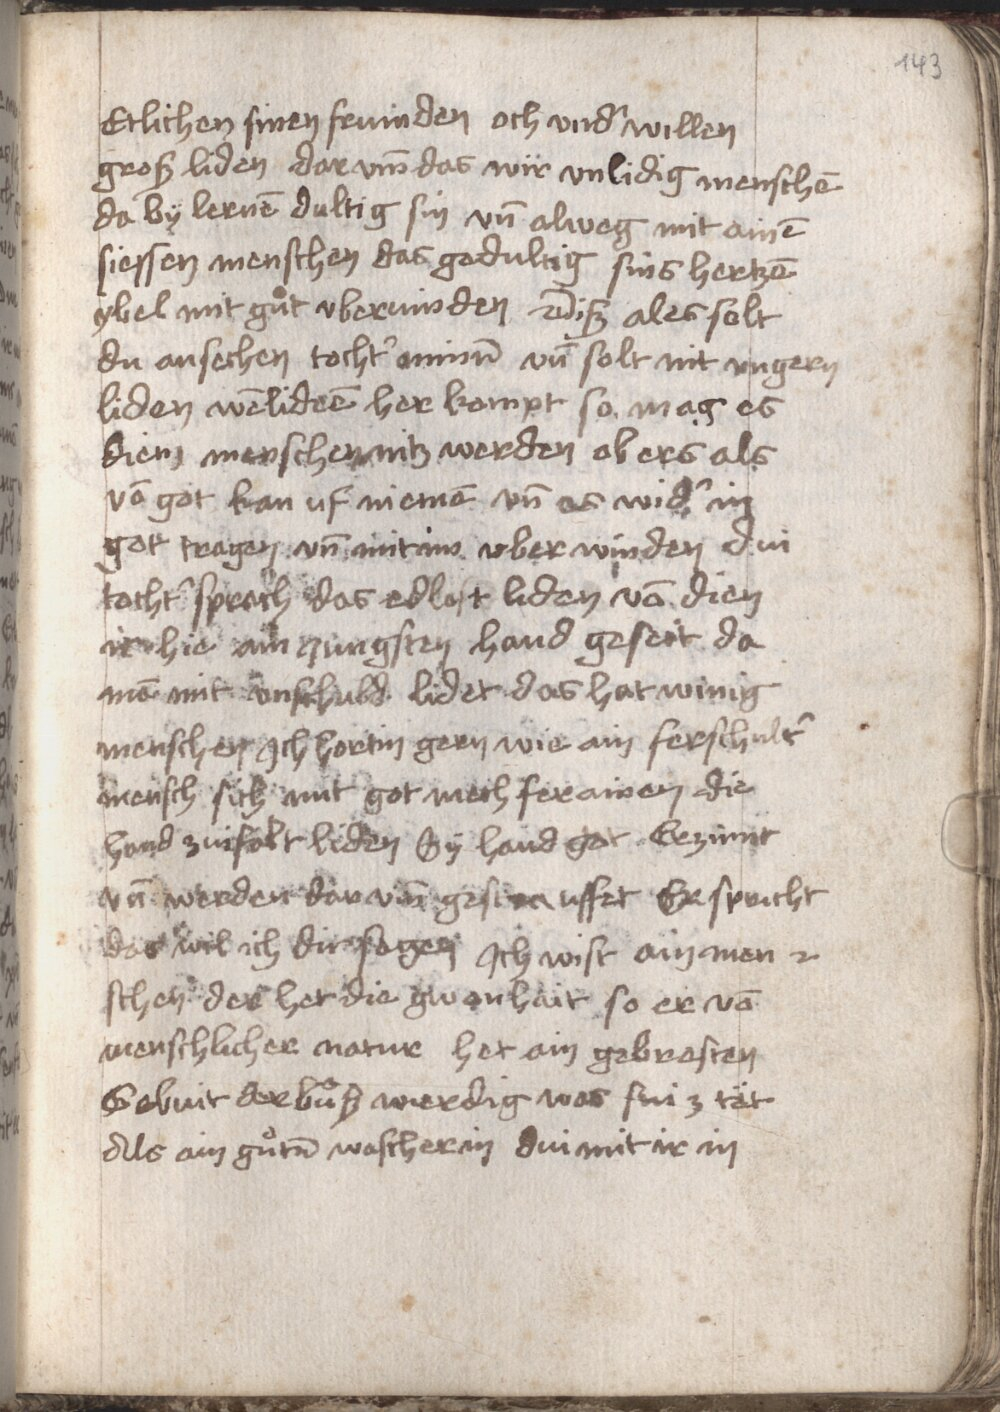 143
Etlichen sinen fruinden och vnd' willen
groß liden dar vm̄ das wir vnlidig menschē
da by lernē dultig sin vn̄ alweg mit ainē
siessen menschen das gedultig sins hertzē
ybel mit gůt vberwinden Diß ales solt
du ansechen tocht' minū vn̄ solt nit vngern
liden wēlidēē her kompt so mag es
diem menschen nitz werden ob ers als
vō got kan uf niemē vn̄ es wid' in
got tragen vn̄ mit im vber winden dui
tocht' sprach das edlost liden vō dien
ir hie am zungsten hand geseit da
mē mit vnschuld lidet das hat winig
menschen Ich hortin gern wie ain ferschult'
mensch sich mit got mech ferainen die
hand zuifalt liden Sy hand got Erzirnt
vn̄ werden dar vm̄ gestrauffet Er spricht
das wil ich dir sagen Ich wist ain men
schen der het die gwonhait so er vō
menschlicher natur het ain gebresten
Gebuit der bůß wierdig was sui z tet
Als ain gůtū wascherin dui mit ir in